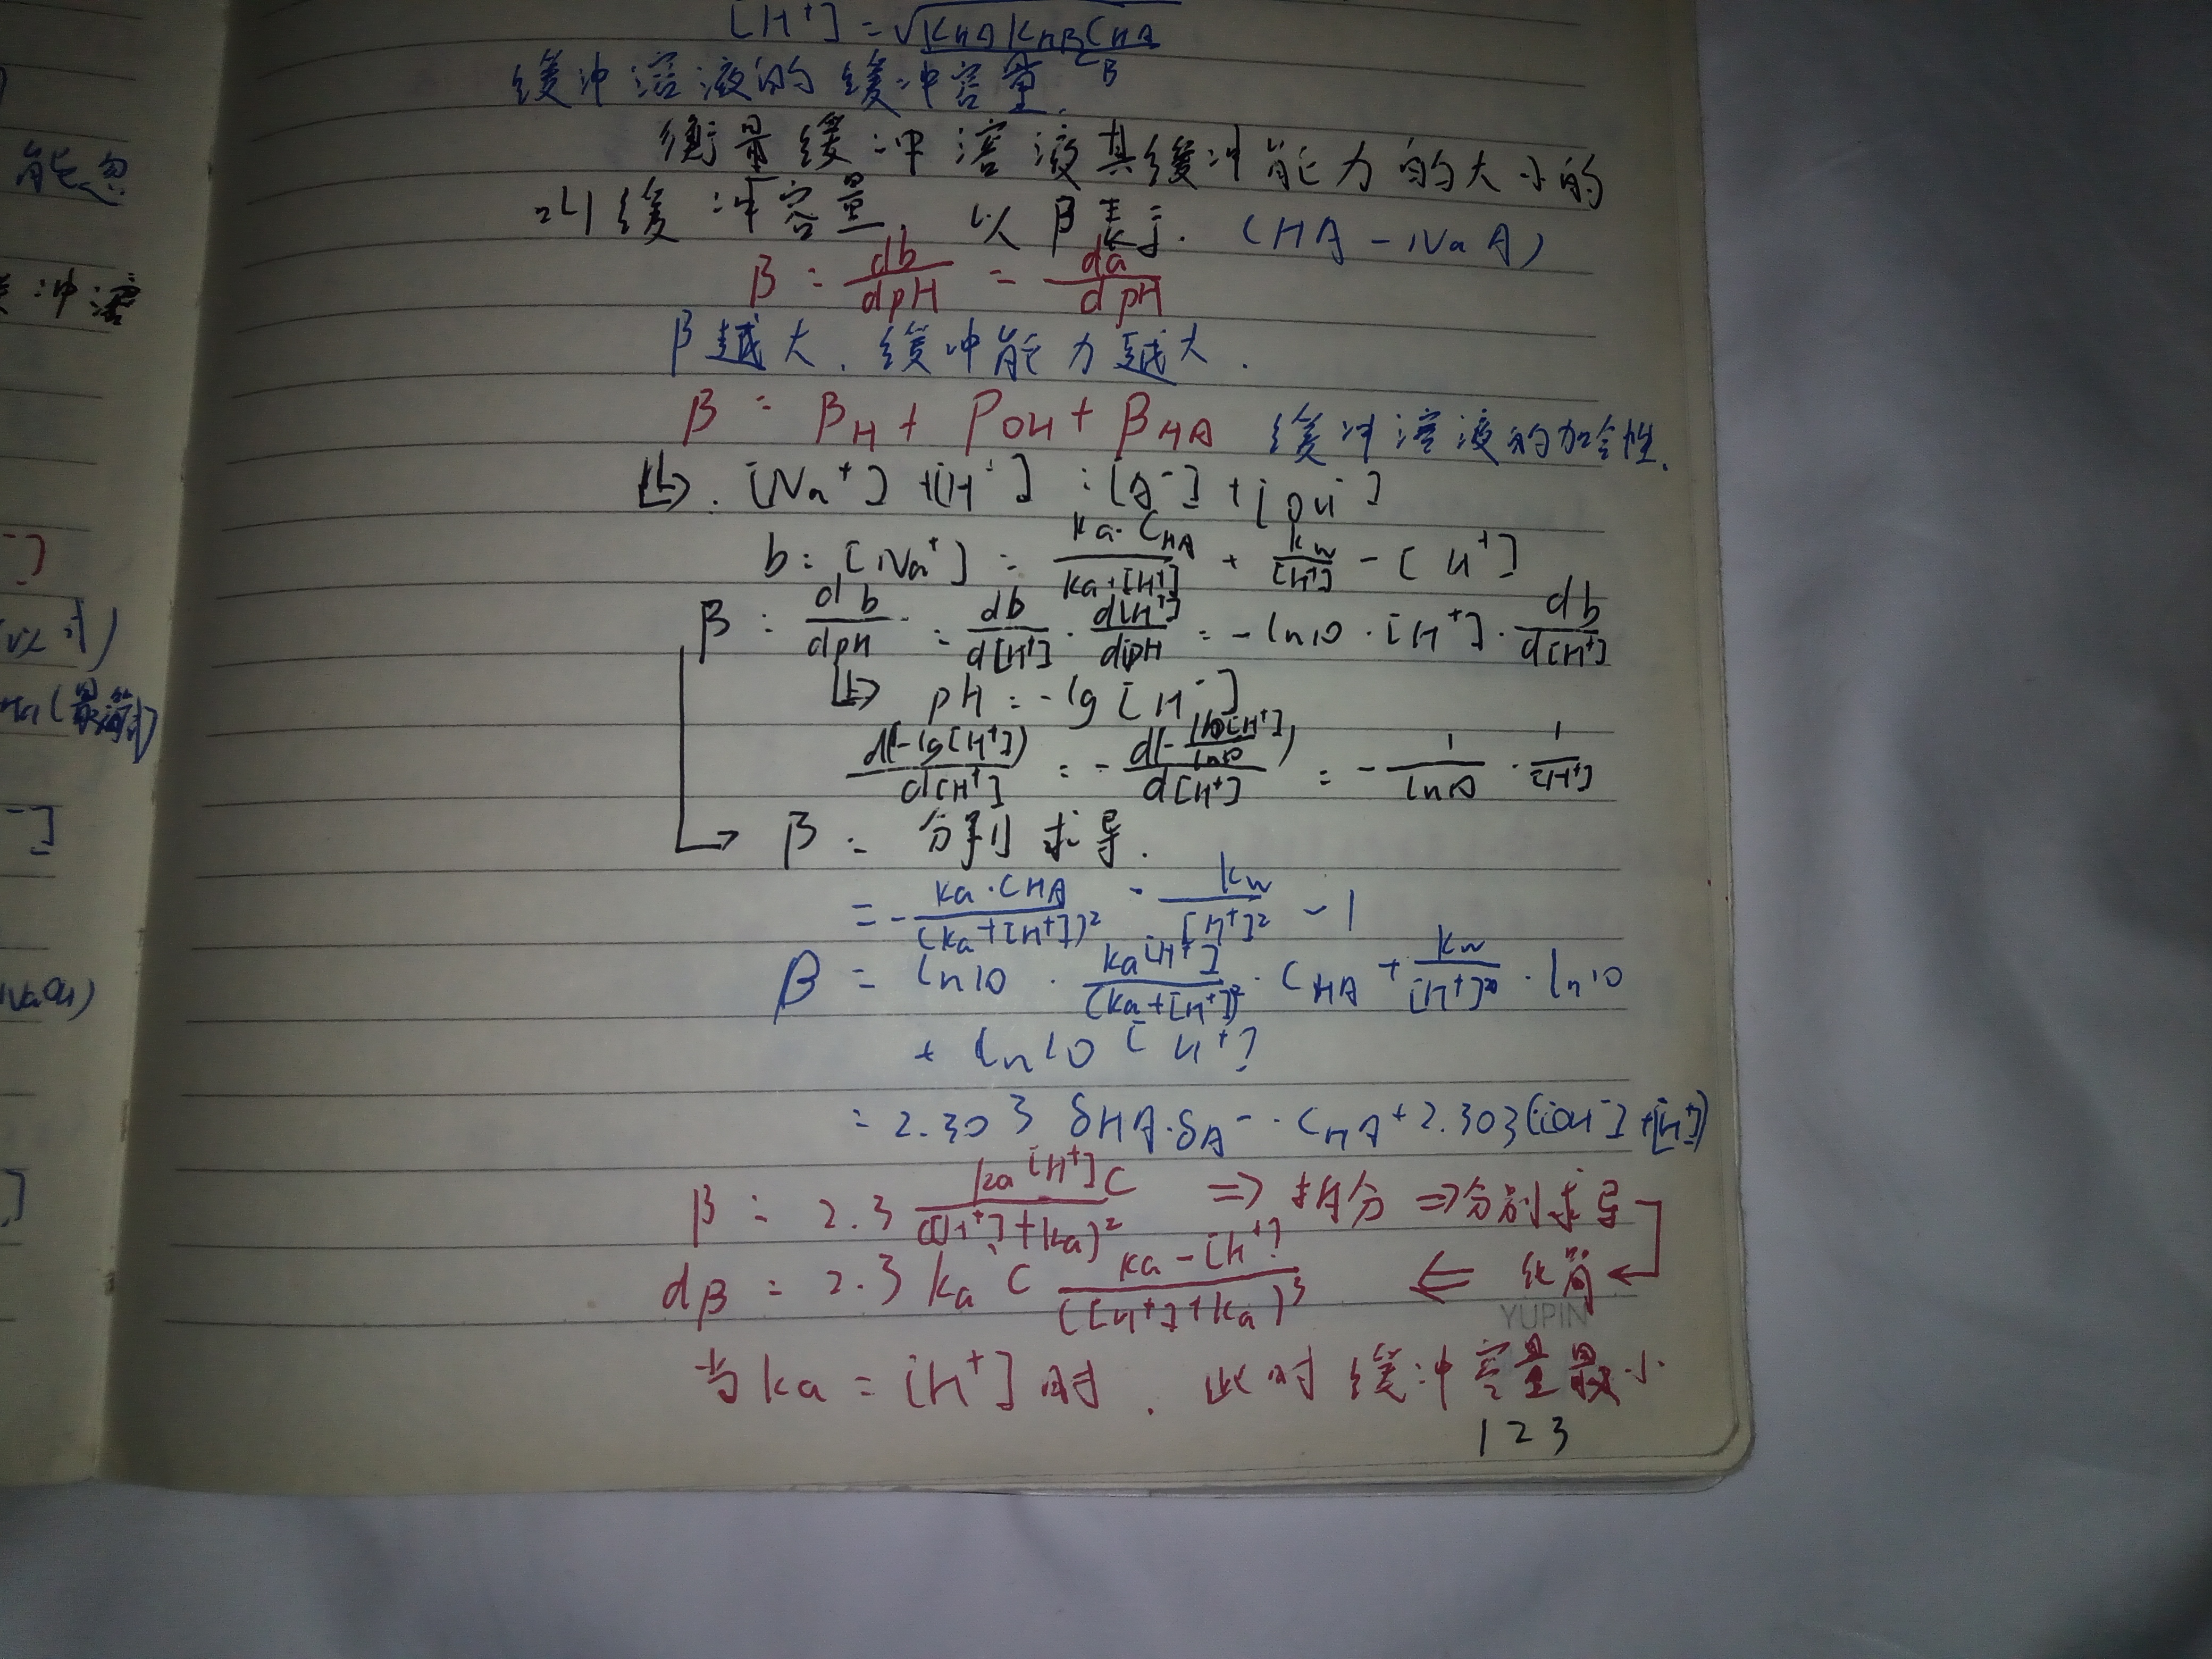 能忽
冲溶
-]
最简式)
-]
NaOH)
]
[H⁺] = √(K_HA K_HB C_HA / C_B)
缓冲溶液的缓冲容量.
衡量缓冲溶液其缓冲能力的大小的
叫缓冲容量, 以β表示. (HA-NaA)
β = db/dpH = da/dpH
β越大, 缓冲能力越大.
β = β_H + β_OH + β_HA 缓冲溶液的加合性.
↳. [Na⁺] + [H⁺] = [A⁻] + [OH⁻]
b = [Na⁺] = ka·C_HA/(ka+[H⁺]) + kw/[H⁺] - [H⁺]
β = db/dpH = db/d[H⁺] · d[H⁺]/dpH = -ln10·[H⁺]·db/d[H⁺]
↳ pH = -lg[H⁺]
d(-lg[H⁺])/d[H⁺] = -d(-ln[H⁺]/ln10)/d[H⁺] = -1/ln10 · 1/[H⁺]
→ β = 分别求导.
= -ka·C_HA/(ka+[H⁺])² - kw/[H⁺]² - 1
β = ln10 · ka[H⁺]/(ka+[H⁺])² · C_HA + kw/[H⁺] · ln10
+ ln10 [H⁺]
= 2.303 δHA·δA⁻·C_HA + 2.303([OH⁻]+[H⁺])
β = 2.3 ka[H⁺]C/([H⁺]+ka)² ⇒ 拆分 ⇒ 分别求导
dβ = 2.3 ka C (ka-[H⁺])/([H⁺]+ka)³ ⇐ 化简
YUPIN
当ka = [H⁺]时. 此时缓冲容量最小
123